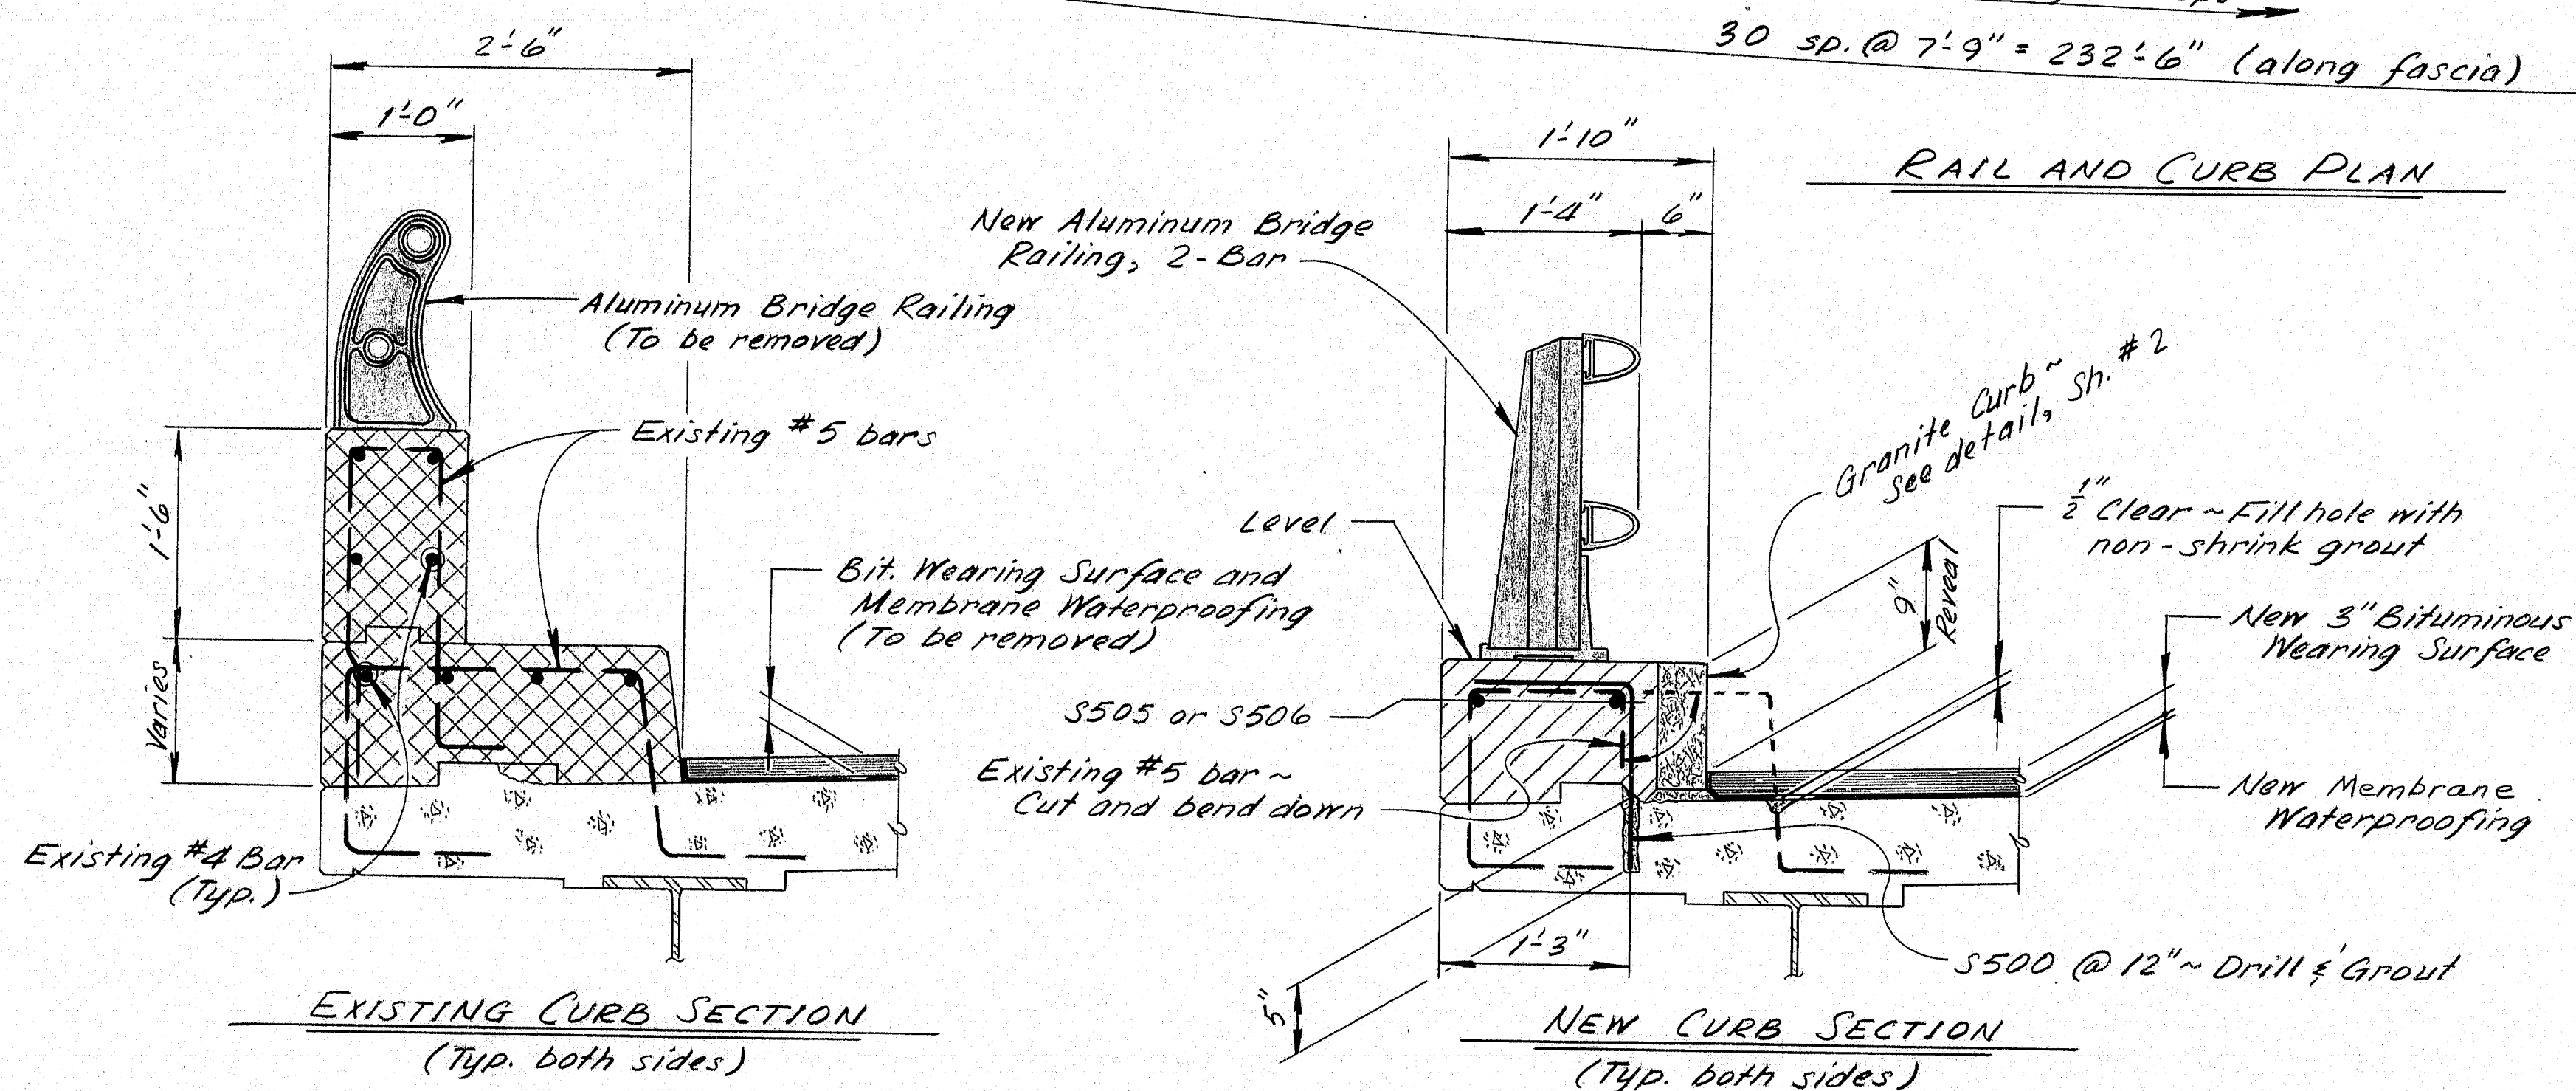 30 sp. @ 7'-9" = 232'-6" (along fascia)
RAIL AND CURB PLAN
2'-6"
1'-0"
Aluminum Bridge Railing
(To be removed)
Existing #5 bars
1'-6"
Varies
Bit. Wearing Surface and
Membrane Waterproofing
(To be removed)
Existing #4 Bar
(Typ.)
EXISTING CURB SECTION
(Typ. both sides)
1'-10"
1'-4"
6"
New Aluminum Bridge
Railing, 2-Bar
Granite Curb ~
see detail, Sh. #2
Level
1/2" Clear ~ Fill hole with
non-shrink grout
9"
Reveal
New 3" Bituminous
Wearing Surface
S505 or S506
Existing #5 bar ~
Cut and bend down
New Membrane
Waterproofing
1'-3"
5"
S500 @ 12" ~ Drill & Grout
NEW CURB SECTION
(Typ. both sides)